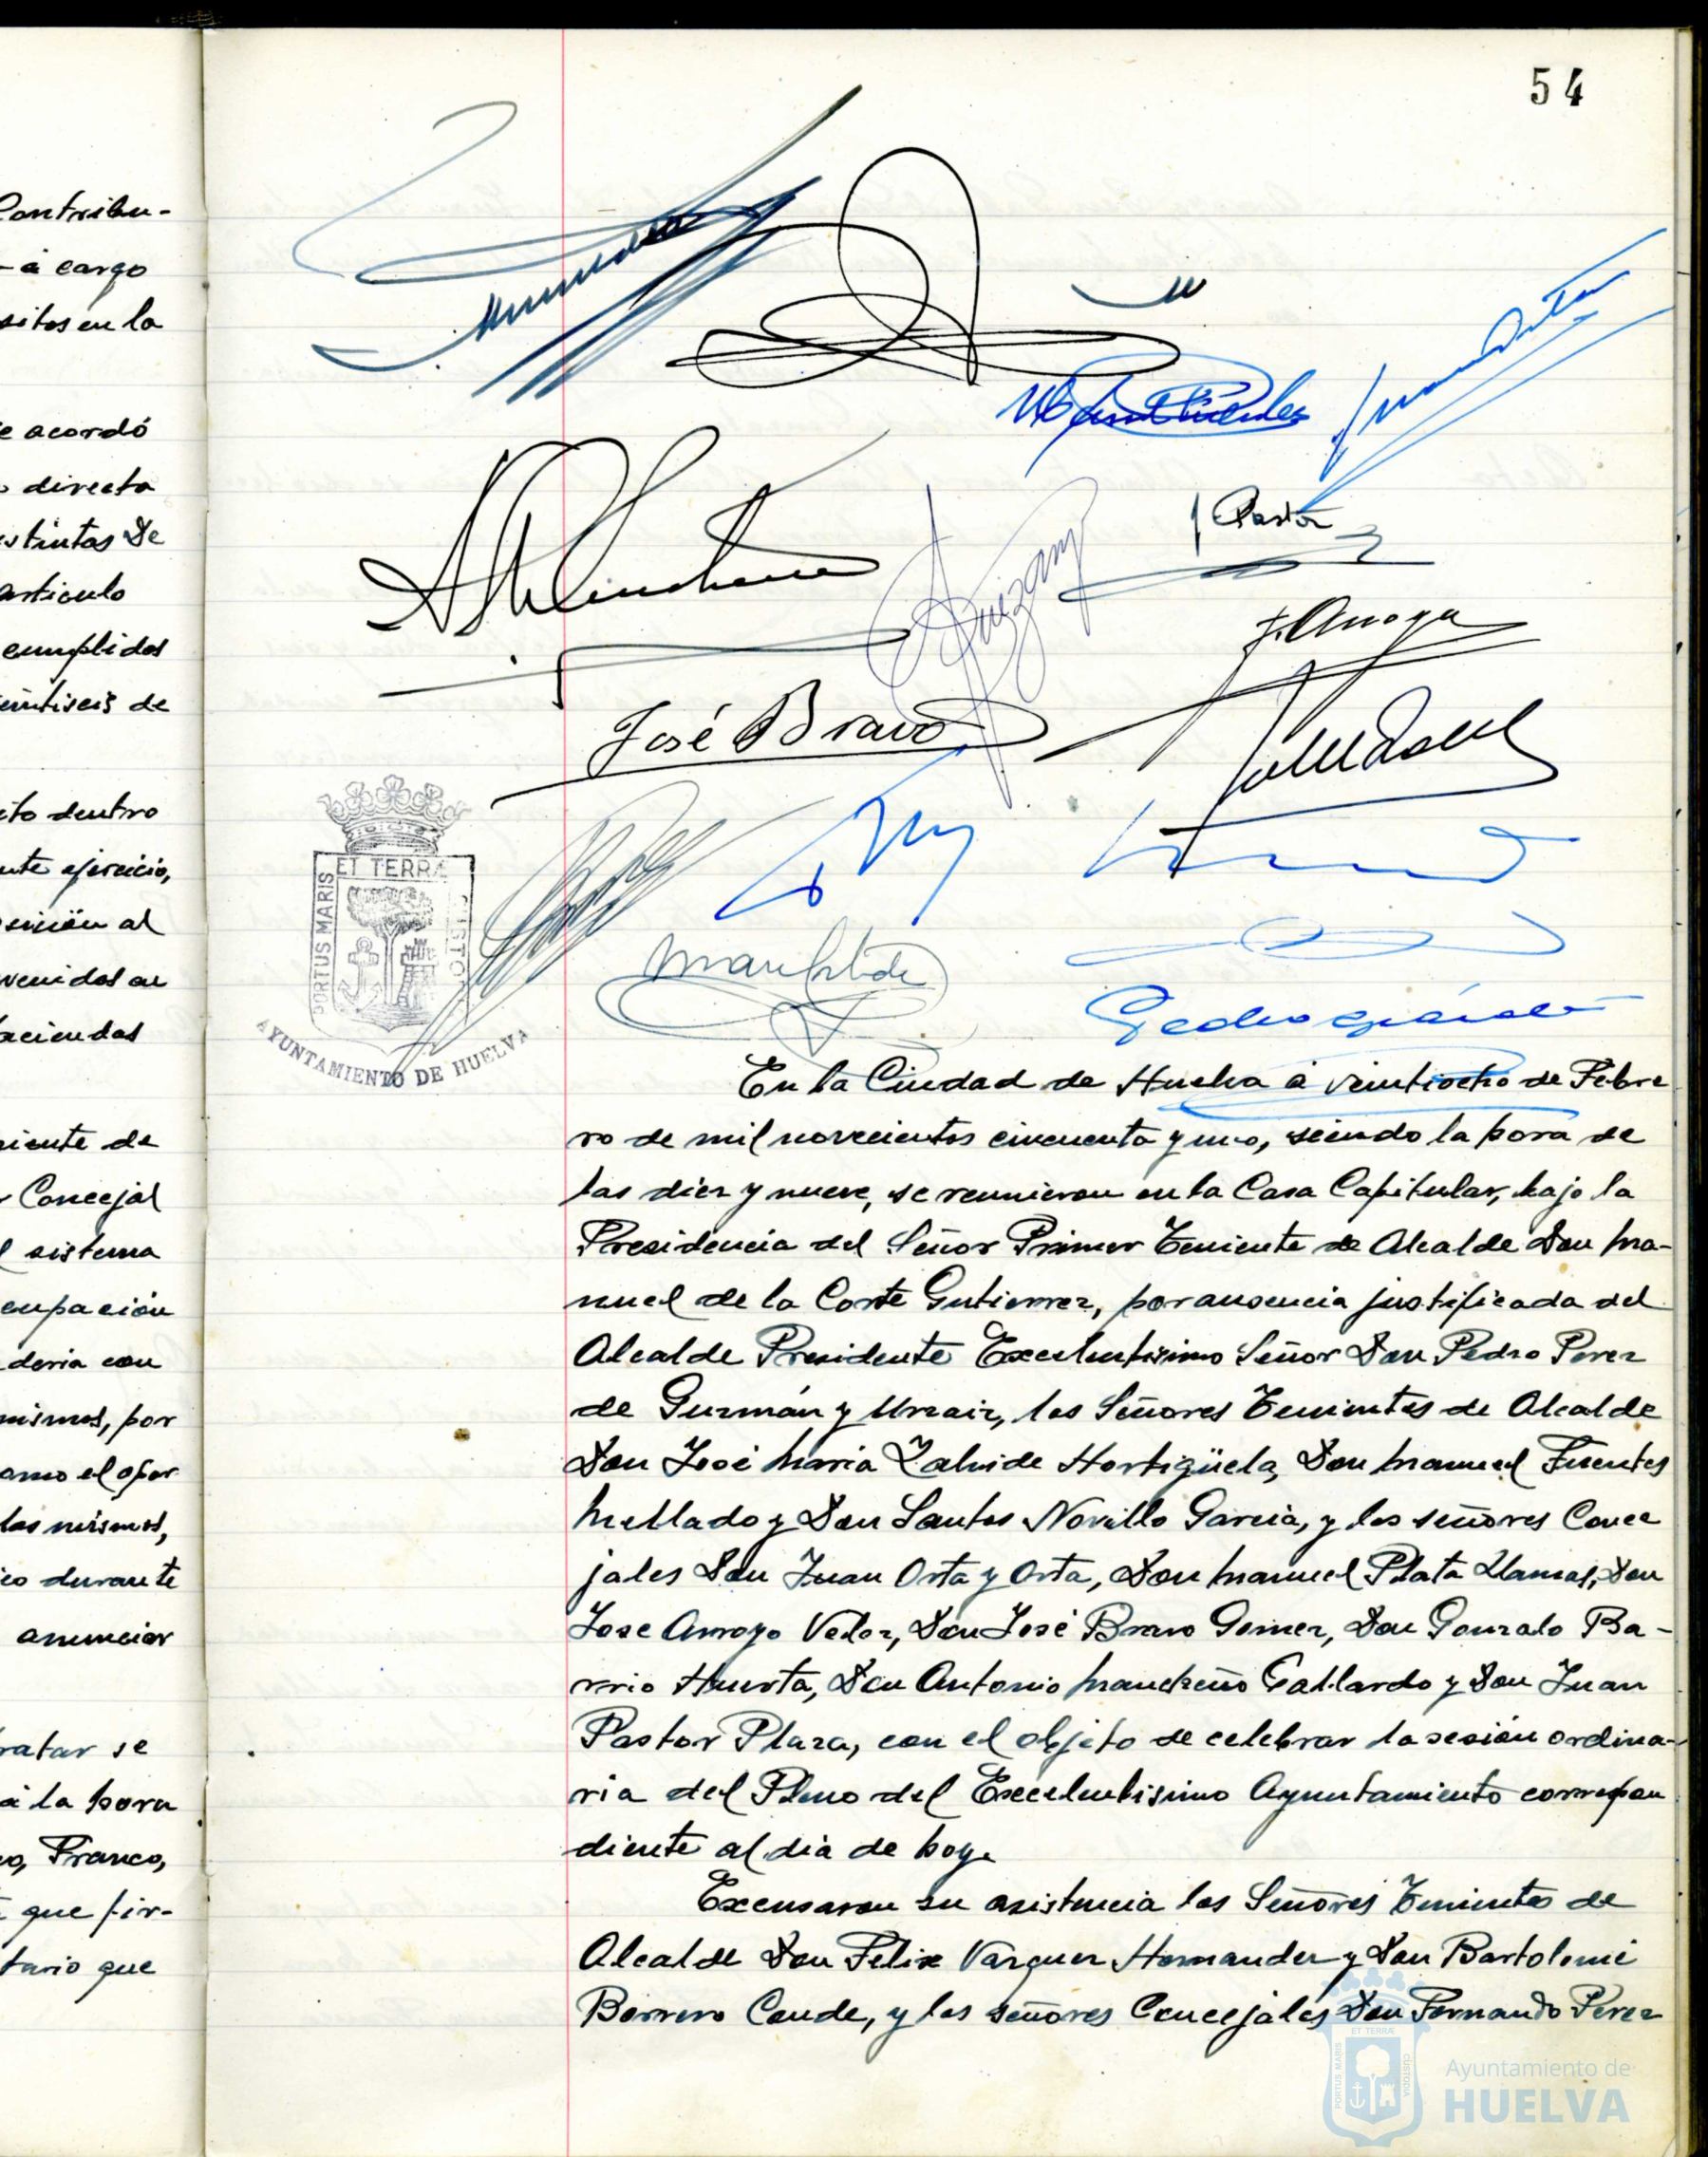 54
Contribu-
- á cargo
sitos en la
e acordó
directa
stintas De
articulo
cumplidos
eintiseis de
to dentro
nte ejercicio,
sición al
venidos en
aciendas
niente de
r Concejal
l sistema
cupación
deria con
mismos, por
omo el opor
los mismos,
co durante
anunciar
ratar se
á la hora
co, Franco,
que fir-
tario que
J. Pastor
J. Arroyo
José Bravo
PORTUS MARIS ET TERRÆ CUSTODIA
AYUNTAMIENTO DE HUELVA
En la Ciudad de Huelva á veintiocho de Febre
ro de mil novecientos cincuenta y uno, siendo la hora de
las diez y nueve, se reunieron en la Casa Capitular, bajo la
Presidencia del Señor Primer Teniente de Alcalde Don Ma-
nuel de la Corte Gutierrez, por ausencia justificada del
Alcalde Presidente Excelentisimo Señor Don Pedro Perez
de Guzmán y Urzaiz, los Señores Tenientes de Alcalde
Don José Maria Zalvide Hortigüela, Don Manuel Fuentes
Mellado y Don Santos Novillo Garcia, y los señores Conce
jales Don Juan Orta y Orta, Don Manuel Plata Llamas, Don
Jose Arroyo Veloz, Don José Bravo Gomez, Don Gonzalo Ba-
rrio Huerta, Don Antonio Mancheño Gallardo y Don Juan
Pastor Plaza, con el objeto de celebrar la sesión ordina-
ria del Pleno del Excelentisimo Ayuntamiento correspon
diente al dia de hoy.
Excusaron su asistencia los Señores Tenientes de
Alcalde Don Felix Vazquez Hernandez y Don Bartolomé
Borrero Conde, y los señores Concejales Don Fernando Perez
PORTUS MARIS ET TERRÆ CUSTODIA
Ayuntamiento de
HUELVA